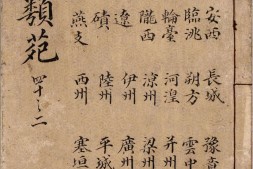 安西 長城 豫章
臨洮 朔方 雲中
輪臺 河湟 并州
隴西 涼州 梁州
遼 伊州 廣州
磧 陸州 平城
燕支 西州 塞垣
類苑 四十之二